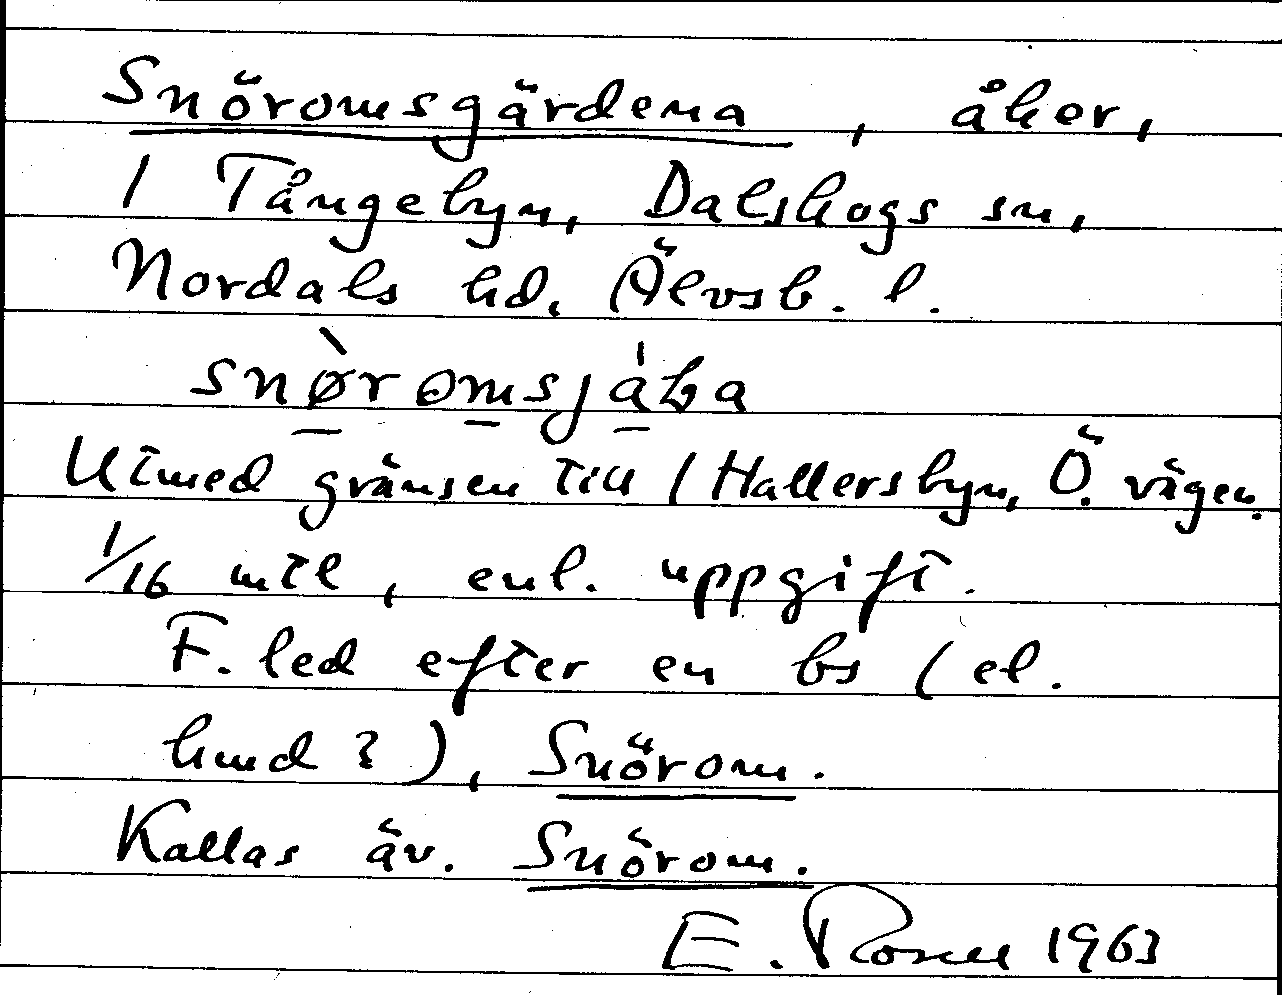 Snöromsgärdena, åker,
/ Tångebyn, Dalskogs sn,
Nordals hd, Älvsb. l.
snø̀romsjáʹba
Utmed gränsen till / Hallersbyn, Ö. vägen.
1/16 mtl, enl. uppgift.
F. led efter en bs (el.
hmd?), Snörom.
Kallas äv. Snörom.
E. 1963